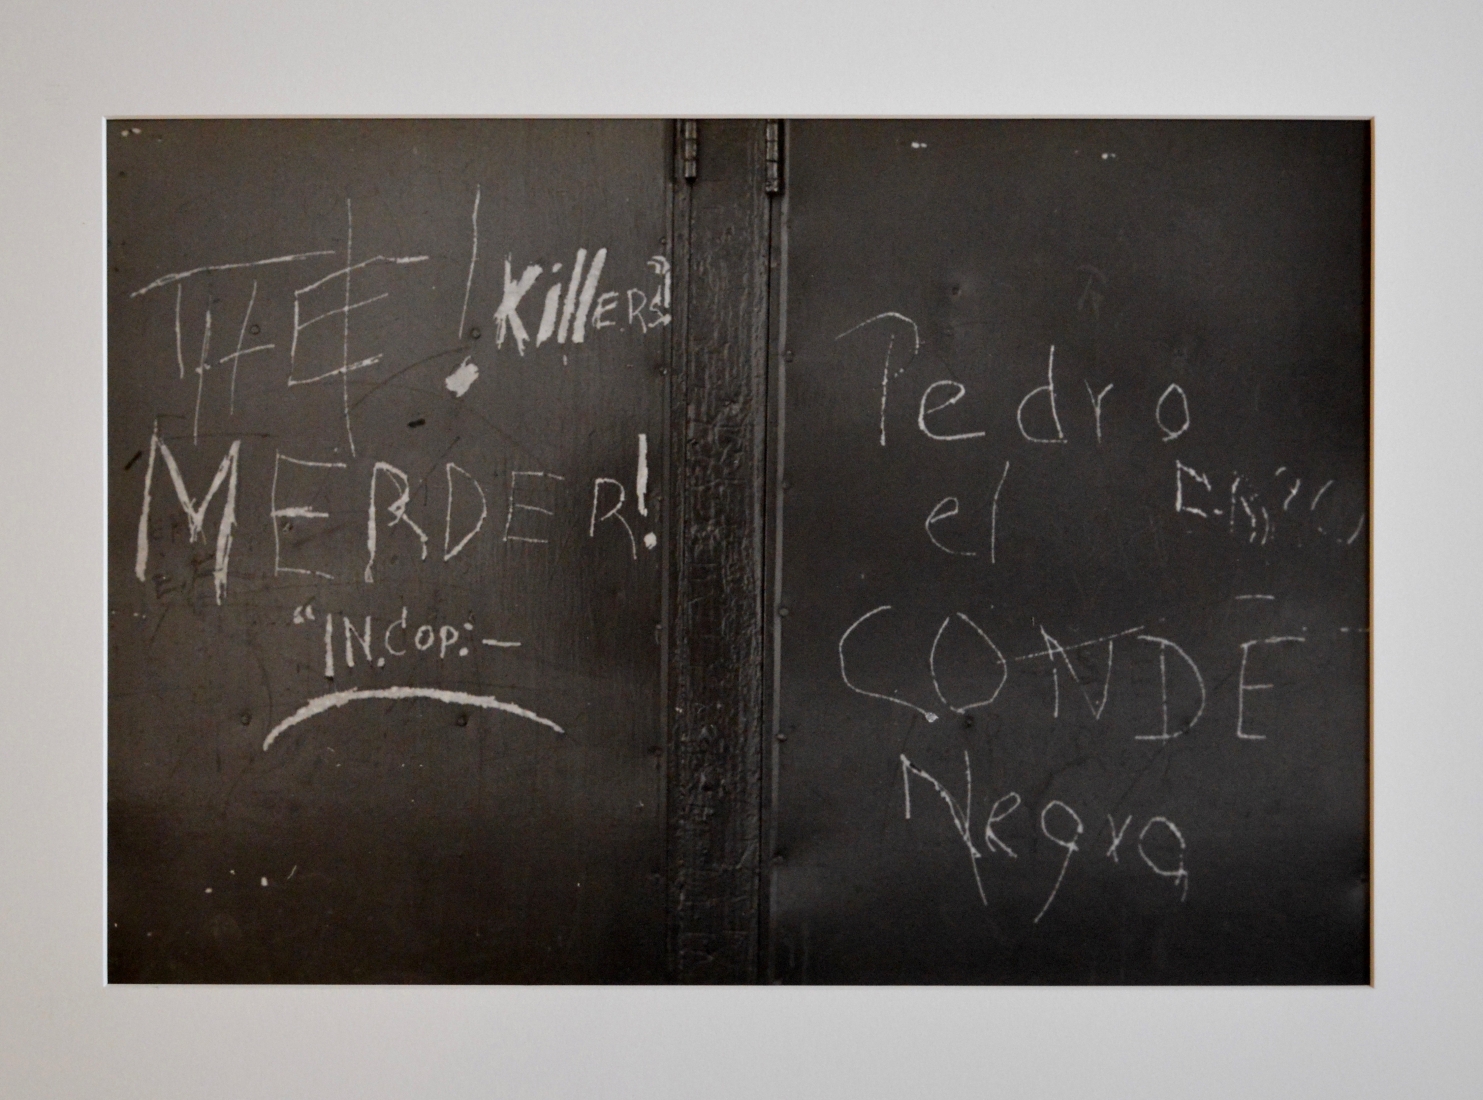 THE! Killers"
MERDER!
"IN.Cop:-
Pedro
el
CONDE
Negro